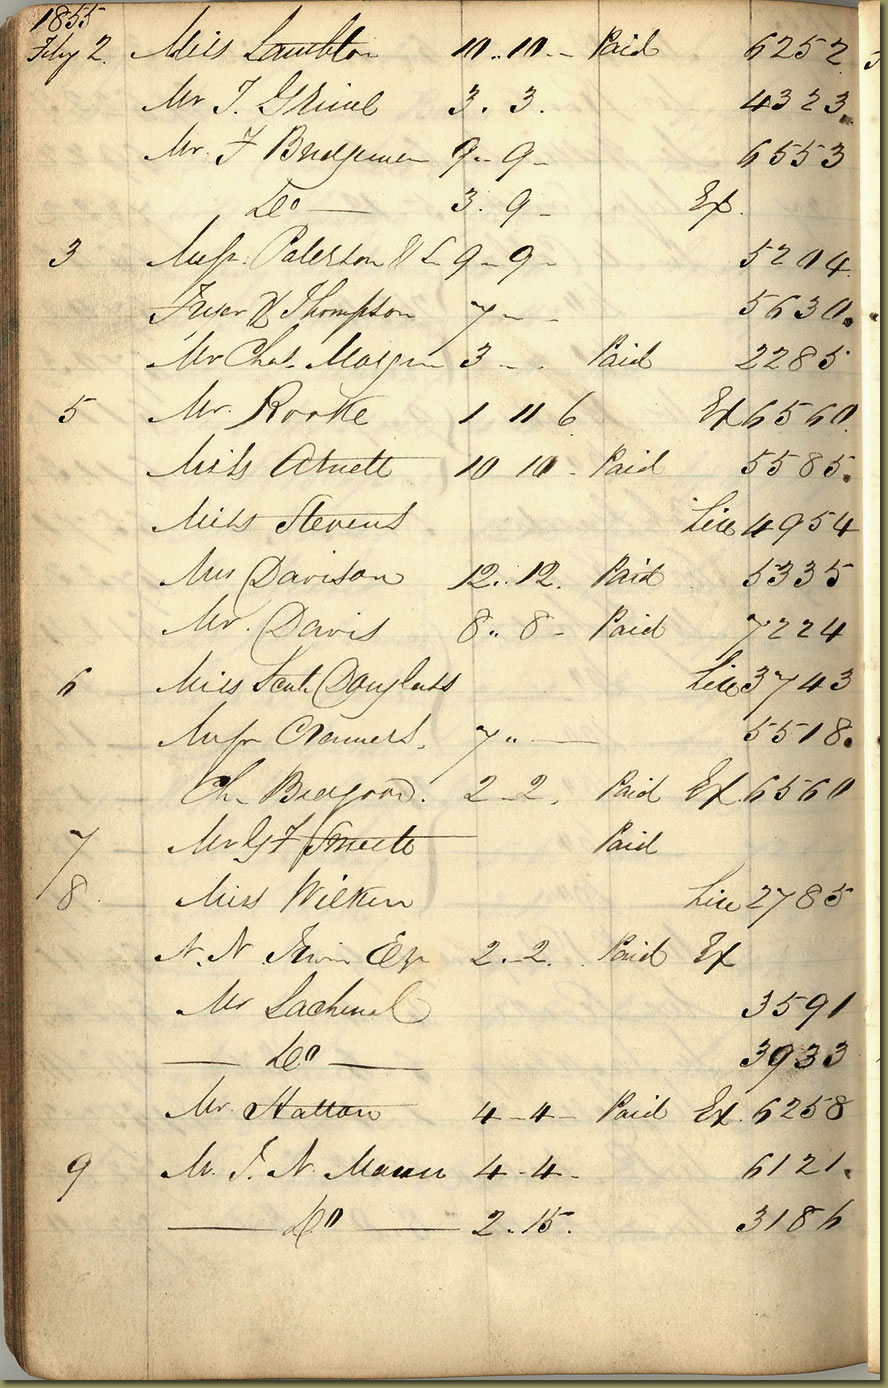 1855
Feby 2. Miss Lambton 10..10.- Paid 6252
Mr T. 3. 3. 4323
Mr. F Bridgeman 9-9- 6553
Do — 3. 9 - Ex.
3 Messr. Paterson & 9-9- 5204
H Thompson 7 - - 5630.
Mr Chas. 3 - . Paid 2285
5 Mr. Rooke 1 11 6 Ex 6560
Miss 10 10 - Paid 5585.
Miss Stevens 4954
Davison 12..12. Paid 5335
Mr. Davis 8.. 8 - Paid 7224
6 Miss Douglass 3743
Messr 7 " — 5518.
Ch. Bidgood. 2-2. Paid Ex 6560
7 Mr G F Paid
8. Miss Wilken 2785
N. N. Irwin Esqr 2.-2. Paid Ex
Mr Lachenal 3591
— Do — 3933
Mr. Hatton 4-4- Paid Ex. 6258
9 Mr. N. 4-4- 6121.
— Do — 2.15. 3186